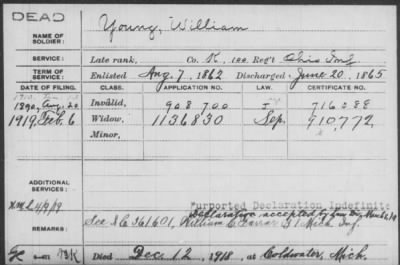 DEAD
NAME OF SOLDIER: Young, William
SERVICE: Late rank, Co. K, 100 Reg't Ohio Inf.
TERM OF SERVICE: Enlisted Aug. 7, 1862 Discharged June 20, 1865
DATE OF FILING. CLASS. APPLICATION NO. LAW. CERTIFICATE NO.
1890, Aug. 20 Invalid, 908700 I 716088
1919, Feb. 6 Widow, 1136830 Sep. 910,772
Minor,
ADDITIONAL SERVICES:
Purported Declaration Indefinite
Declaration accepted by
REMARKS: See XC 361601, William C Mich. Inf.
Died Dec. 12, 1918, at Coldwater, Mich.